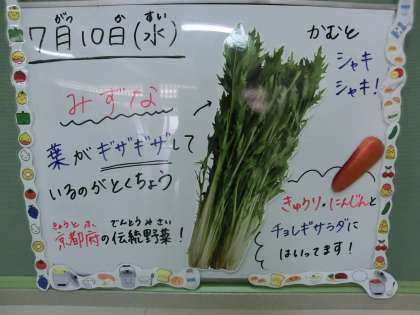 7月10日(水)
がつ か すい
みずな
葉がギザギザして
いるのがとくちょう
きょうとふ でんとうやさい
京都府の伝統野菜!
かむと
シャキ
シャキ!
きゅうり・にんじんと
チョレギサラダに
はいってます!